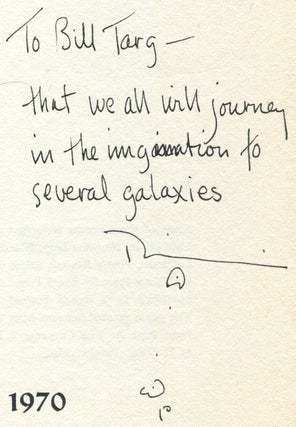 To Bill Targ —
that we all will journey
in the imgination to
several galaxies
1970